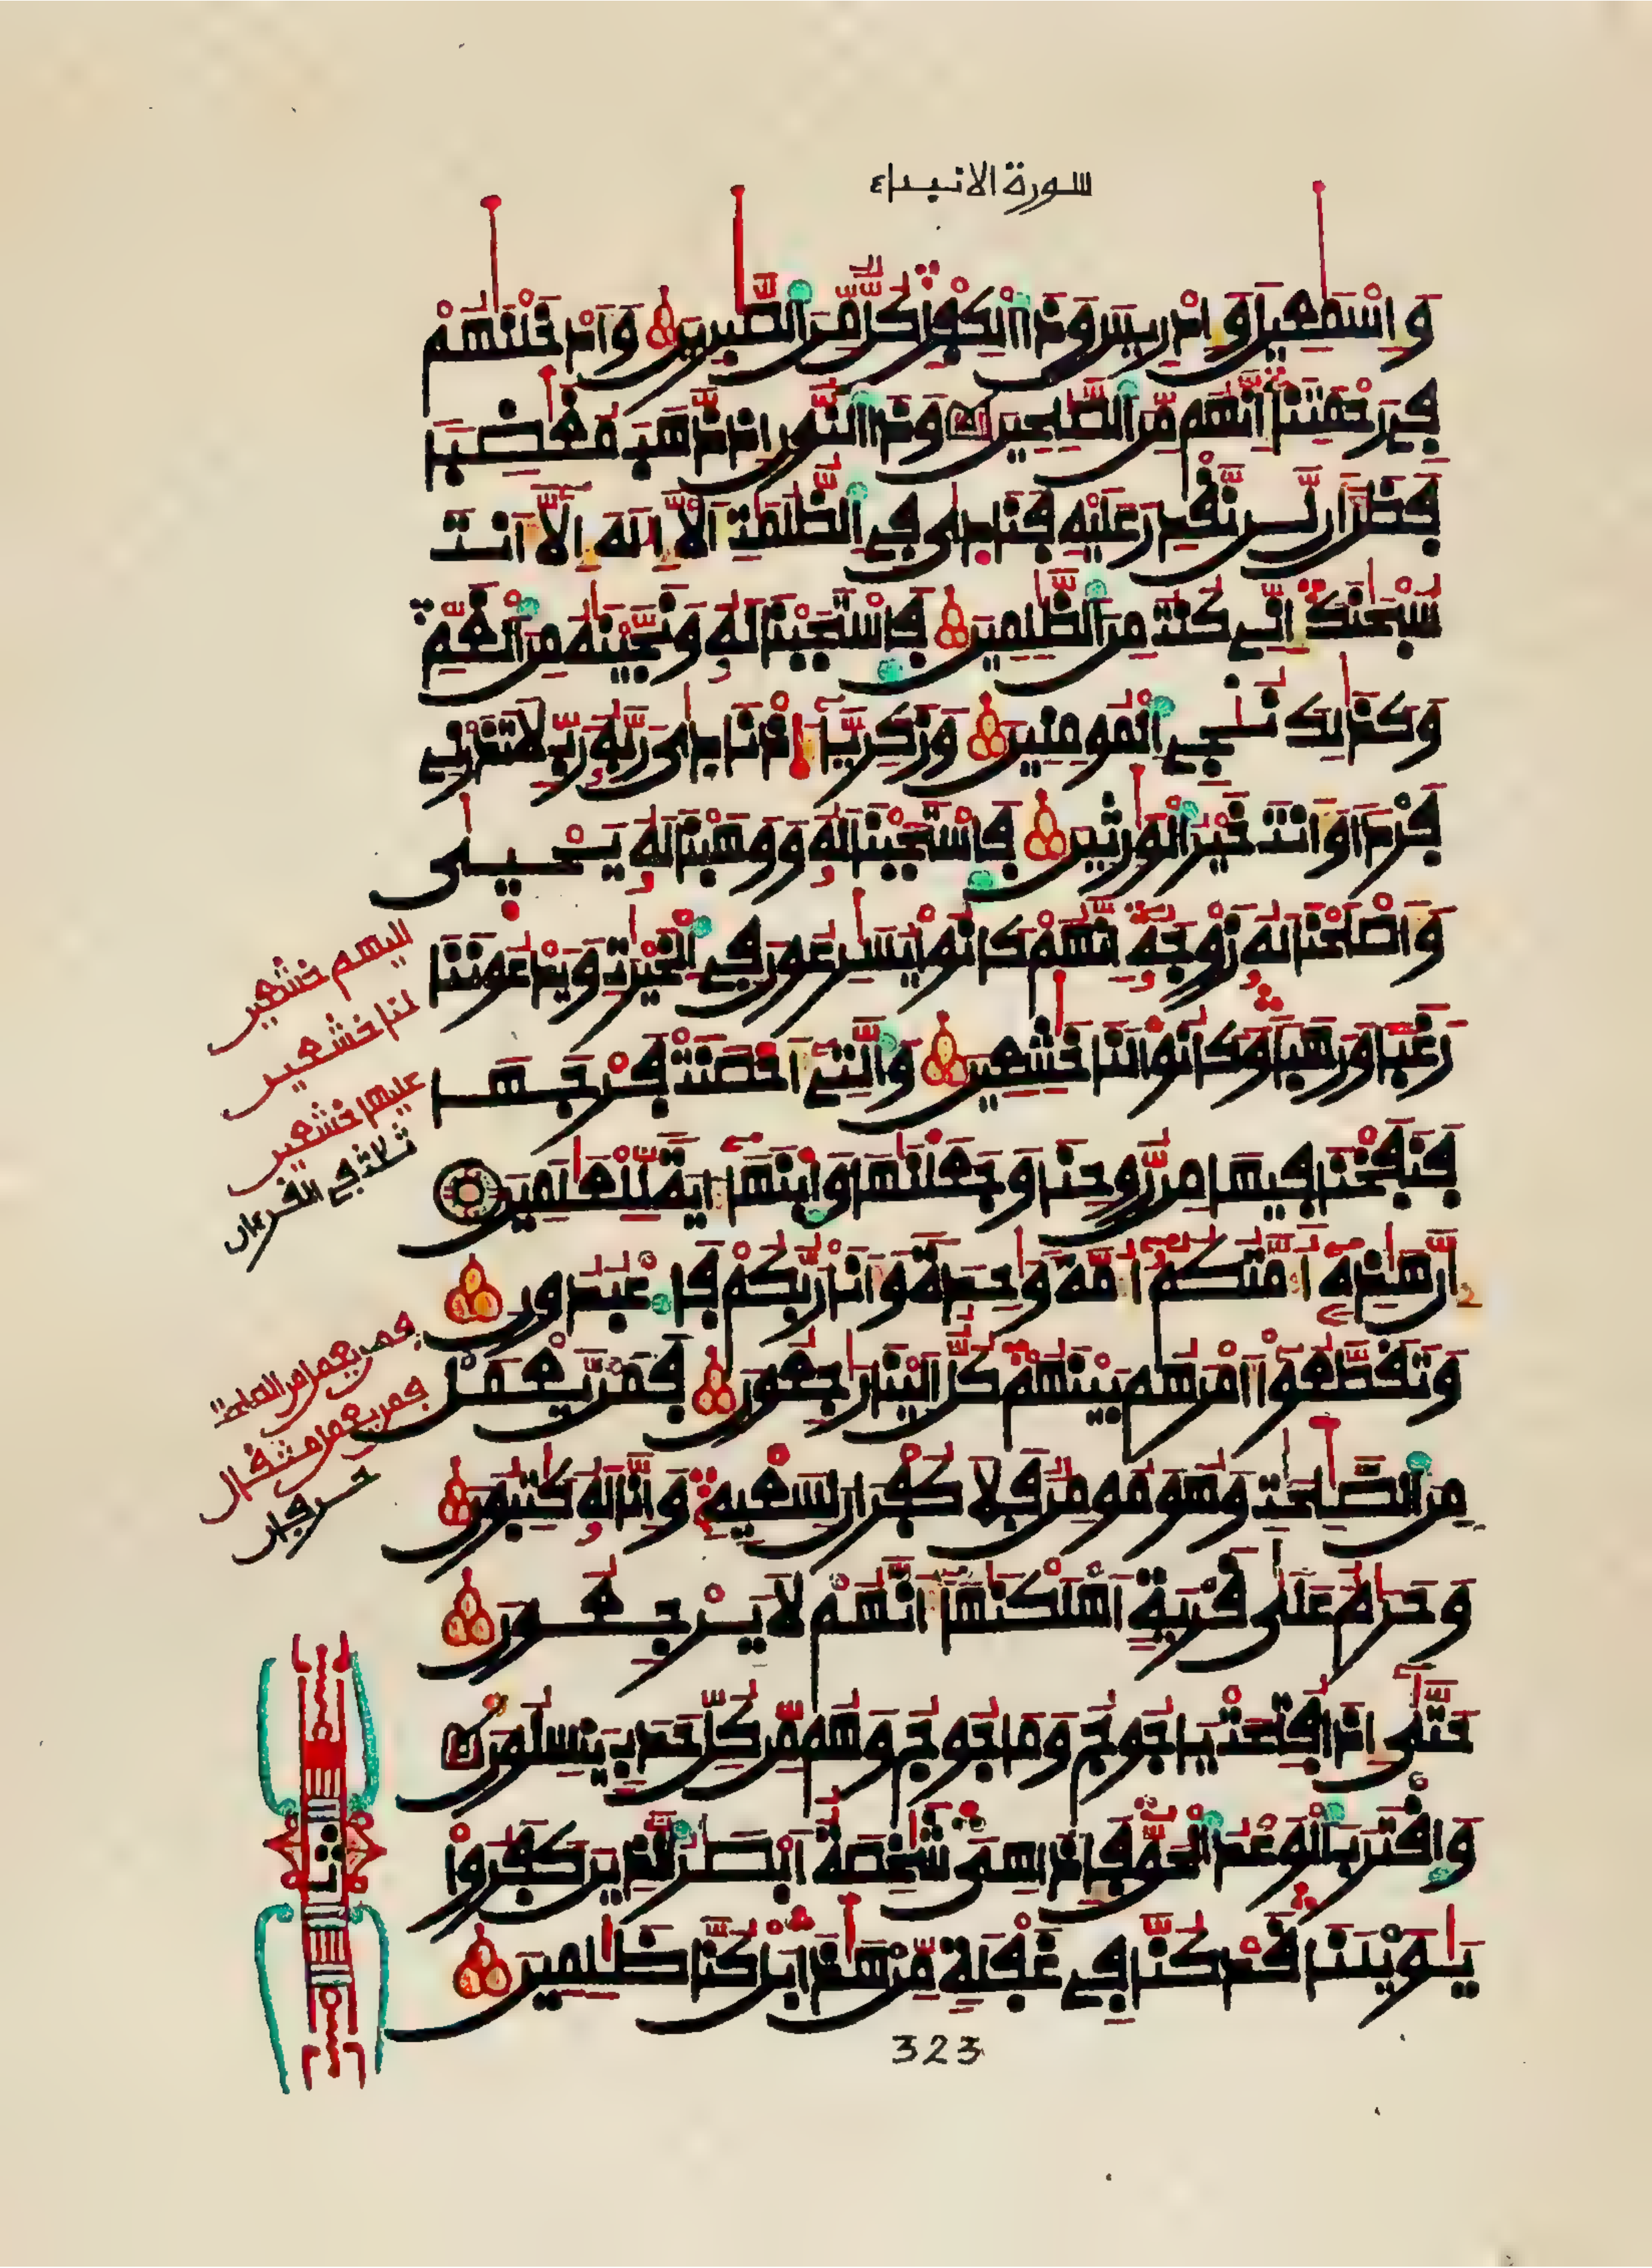 سورة الانبياء
وَإِسْمَٰعِيلَ وَإِدْرِيسَ وَذَا اَ۬لْكِفْلِ كُلّٞ مِّنَ اَ۬لصَّٰبِرِينَ وَأَدْخَلْنَٰهُمْ
فِے رَحْمَتِنَآ إِنَّهُم مِّنَ اَ۬لصَّٰلِحِينَ وَذَا اَ۬لنُّونِ إِذ ذَّهَبَ مُغَٰضِباٗ
فَظَنَّ أَن لَّن نَّقْدِرَ عَلَيْهِ فَنَادٜىٰ فِے اِ۬لظُّلُمَٰتِ أَن لَّآ إِلَٰهَ إِلَّآ أَنتَ
سُبْحَٰنَكَ إِنِّے كُنتُ مِنَ اَ۬لظَّٰلِمِينَ فَاسْتَجَبْنَا لَهُۥ وَنَجَّيْنَٰهُ مِنَ اَ۬لْغَمِّ
وَكَذَٰلِكَ نُۨجِے اِ۬لْمُومِنِينَ وَزَكَرِيَّآءَ إِذْ نَادٜىٰ رَبَّهُۥ رَبِّ لَا تَذَرْنِے
فَرْداٗ وَأَنتَ خَيْرُ اُ۬لْوَٰرِثِينَ فَاسْتَجَبْنَا لَهُۥ وَوَهَبْنَا لَهُۥ يَحْيٜىٰ
وَأَصْلَحْنَا لَهُۥ زَوْجَهُۥٓ إِنَّهُمْ كَانُواْ يُسَٰرِعُونَ فِے اِ۬لْخَيْرَٰتِ وَيَدْعُونَنَا
رَغَباٗ وَرَهَباٗ وَكَانُواْ لَنَا خَٰشِعِينَ وَالتِےٓ أَحْصَنَتْ فَرْجَهَا
فَنَفَخْنَا فِيهَا مِن رُّوحِنَا وَجَعَلْنَٰهَا وَابْنَهَآ ءَايَةٗ لِّلْعَٰلَمِينَ
إِنَّ هَٰذِهِۦٓ أُمَّتُكُمُۥٓ أُمَّةٗ وَٰحِدَةٗ وَأَنَا رَبُّكُمْ فَاعْبُدُونِ
وَتَقَطَّعُوٓاْ أَمْرَهُم بَيْنَهُمْ كُلٌّ اِلَيْنَا رَٰجِعُونَ فَمَن يَّعْمَلْ
مِنَ اَ۬لصَّٰلِحَٰتِ وَهُوَ مُومِنٞ فَلَا كُفْرَانَ لِسَعْيِهِۦ وَإِنَّا لَهُۥ كَٰتِبُونَ
وَحَرَٰمٌ عَلَىٰ قَرْيَةٍ اَهْلَكْنَٰهَآ أَنَّهُمْ لَا يَرْجِعُونَ
حَتَّىٰٓ إِذَا فُتِحَتْ يَاجُوجُ وَمَاجُوجُ وَهُم مِّن كُلِّ حَدَبٖ يَنسِلُونَ
وَاقْتَرَبَ اَ۬لْوَعْدُ اُ۬لْحَقُّ فَإِذَا هِيَ شَٰخِصَةٌ اَبْصَٰرُ اُ۬لذِينَ كَفَرُواْ
يَٰوَيْلَنَا قَدْ كُنَّا فِے غَفْلَةٖ مِّنْ هَٰذَا بَلْ كُنَّا ظَٰلِمِينَ
خشعين
لنا خشعين
عليها خشعين
ثلاثة في القرءان
فمن يعمل من الصلحت
فمن يعمل مثقال
حرفان
323